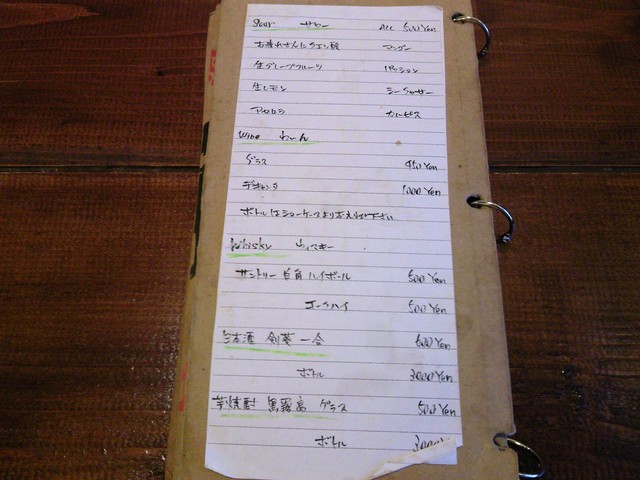 Sour サワー All 500 Yen
お疲れさんにクエン酸 マンゴー
生グレープフルーツ パッション
生レモン シークヮーサー
アセロラ カルピス
Wine わいん
グラス 450 Yen
デキャンタ 1000 Yen
ボトルはショーケースよりお入り下さい
Whisky ウィスキー
サントリー 白角 ハイボール 500 Yen
コークハイ 500 Yen
日本酒 剣菱 一合 600 Yen
ボトル 3000 Yen
芋焼酎 黒霧島 グラス 500 Yen
ボトル